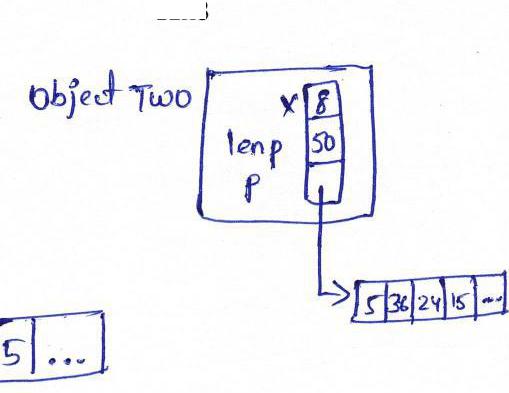 Object Two
x 8
lenp 50
p
5 36 24 15 ...
5 ...